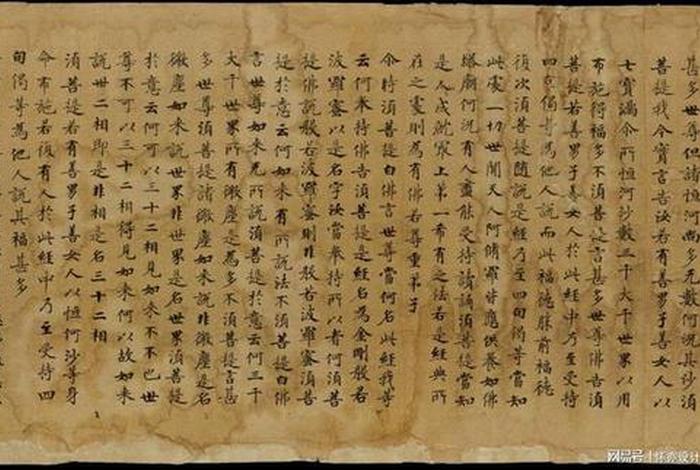 甚多世尊但諸恒河尚多无數何況其沙須
菩提我今實言告汝若有善男子善女人以
七寶滿尒所恒河沙數三千大千世界以用
布施得福多不須菩提言甚多世尊佛告須
菩提若善男子善女人於此經中乃至受持
四句偈等爲他人說而此福德勝前福德
復次須菩提隨說是經乃至四句偈等當知
此處一切世間天人阿脩羅皆應供養如佛
塔廟何況有人盡能受持讀誦須菩提當知
是人成就冣上第一希有之法若是經典所
在之處則爲有佛若尊重弟子
尒時須菩提白佛言世尊當何名此經我等
云何奉持佛告須菩提是經名爲金剛般若
波羅蜜以是名字汝當奉持所以者何須菩
提佛說般若波羅蜜則非般若波羅蜜須菩
提於意云何如來有所說法不須菩提白佛
言世尊如來无所說須菩提於意云何三千
大千世界所有微塵是爲多不須菩提言甚
多世尊須菩提諸微塵如來說非微塵是名
微塵如來說世界非世界是名世界須菩提
於意云何可以三十二相見如來不不也世
尊不可以三十二相得見如來何以故如來
說卅二相即是非相是名三十二相
須菩提若有善男子善女人以恒河沙等身
命布施若復有人於此經中乃至受持四
句偈等爲他人說其福甚多
网易号 | 怀亦设计